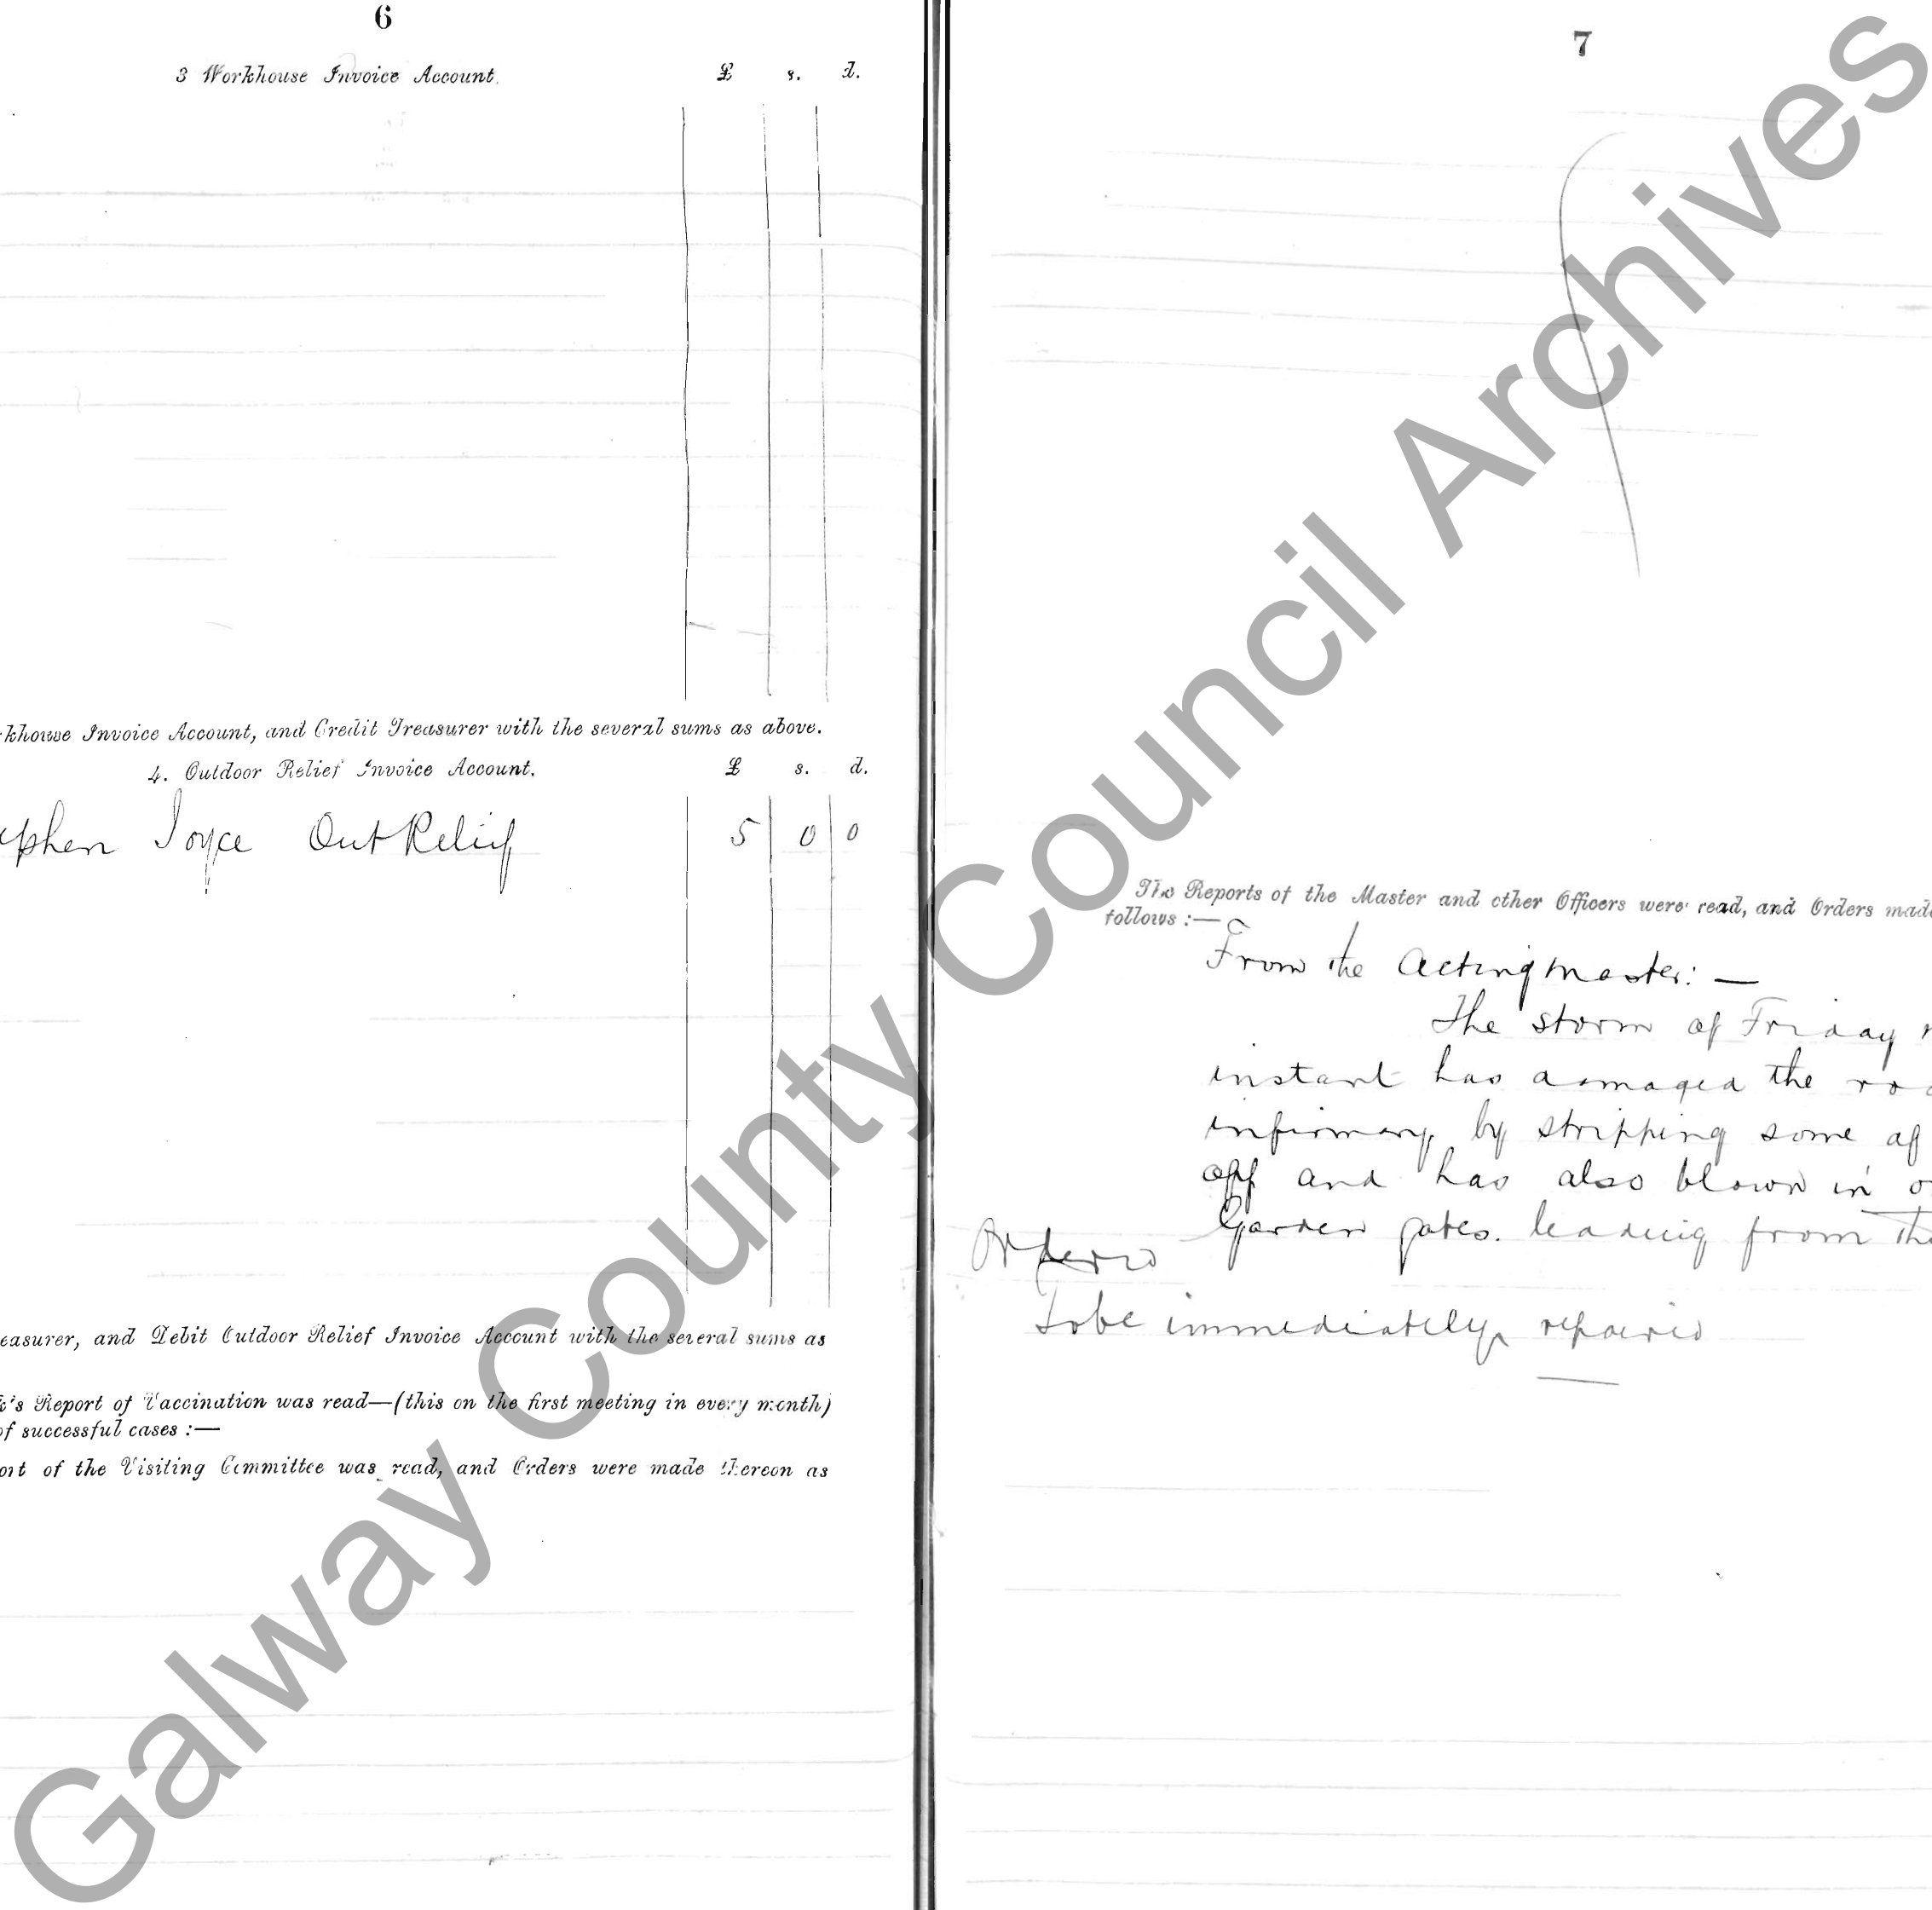 6
3 Workhouse Invoice Account. £ s. d.
khouse Invoice Account, and Credit Treasurer with the several sums as above.
4. Outdoor Relief Invoice Account. £ s. d.
ephen Joyce Out Relief 5 0 0
easurer, and Debit Outdoor Relief Invoice Account with the several sums as
k's Report of Vaccination was read—(this on the first meeting in every month)
of successful cases :—
ort of the Visiting Committee was read, and Orders were made thereon as
7
The Reports of the Master and other Officers were read, and Orders made
follows :—
From the Acting Master: —
The storm of Friday
instant has damaged the
infirmary by stripping some of
off and has also blown in
Garden gates. leading from the
Ordered
To be immediately repaired
Galway County Council Archives